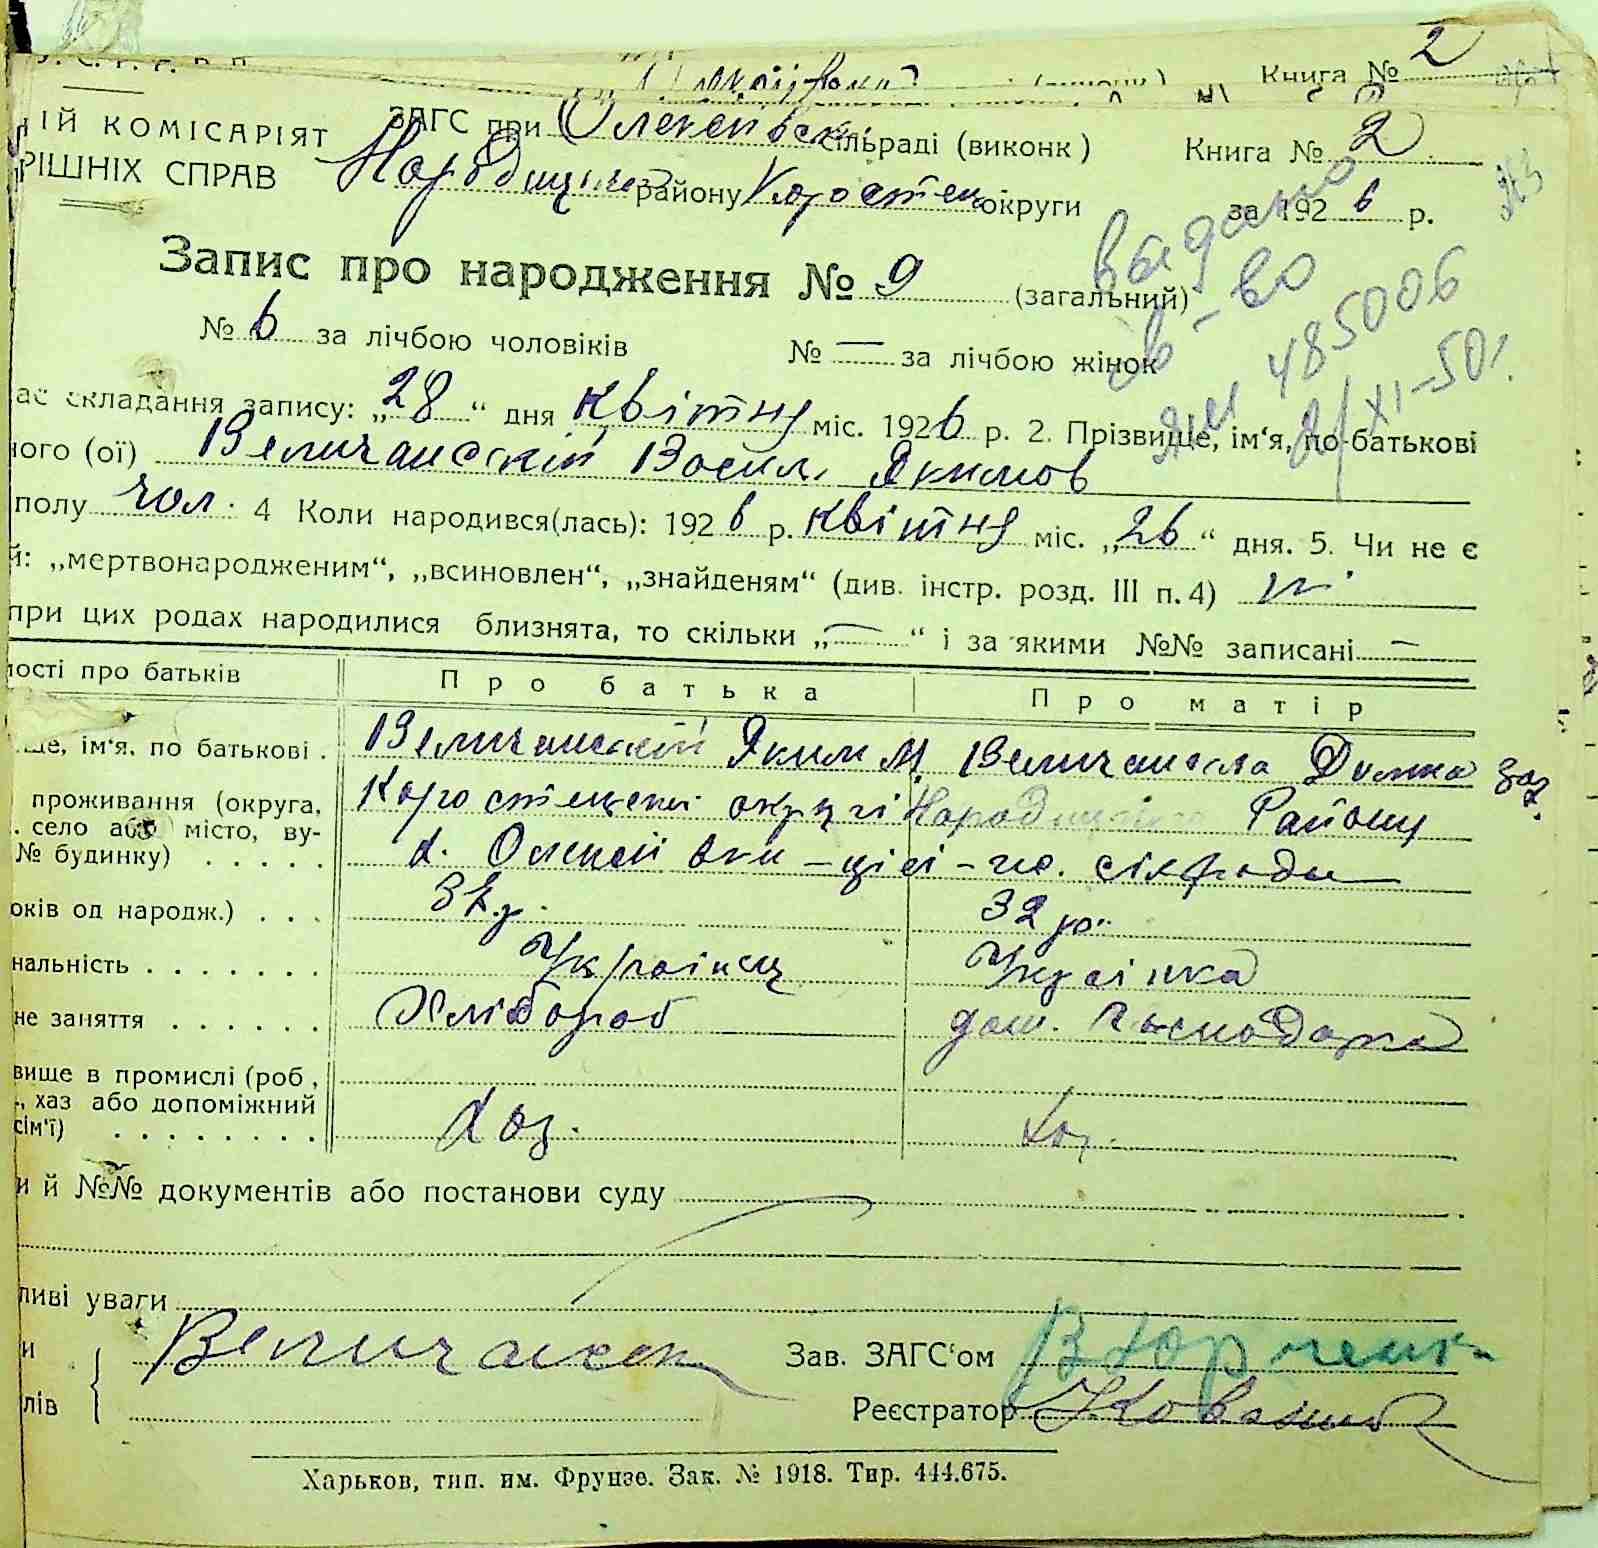 Книга № 2
ІЙ КОМІСАРІЯТ ЗАГС при Олексіївск. сільраді (виконк) Книга № 2
РІШНІХ СПРАВ Народицьк району Коростень округи за 1926 р.
Запис про народження № 9 (загальний)
видано
с-во
485006
/XI-50г.
№ 6 за лічбою чоловіків № — за лічбою жінок
ас складання запису: „28“ дня квітня міс. 1926 р. 2. Прізвище, ім‘я, по-батькові
ного (ої) Величанський Васил. Якимов
полу чол. 4 Коли народився(лась): 1926 р. квітня міс. „26“ дня. 5. Чи не є
й: „мертвонародженим“, „всиновлен“, „знайденям“ (див. інстр. розд. III п. 4) ні
при цих родах народилися близнята, то скільки „—“ і за якими №№ записані —
ності про батьків Про батька Про матір
ще, ім‘я, по батькові . Величанський Яким М. Величанська Домка Заг.
проживання (округа, Коростенської округи Народицького Району
село або місто, ву-
№ будинку) . . . . . Олексіївки – цієї – ж. сільради
оків од народж.) . . . 32 р. 32 р.
нальність . . . . . . . Українець Українка
не заняття . . . . . . Хлібороб дом. Господарка
вище в промислі (роб,
, хаз або допоміжний
сім‘ї) . . . . . . . . Хоз. Хоз.
и й №№ документів або постанови суду
ливі уваги
и Величанск Зав. ЗАГС‘ом
лів Реєстратор
Харьков, тип. им. Фрунзе. Зак. № 1918. Тир. 444.675.